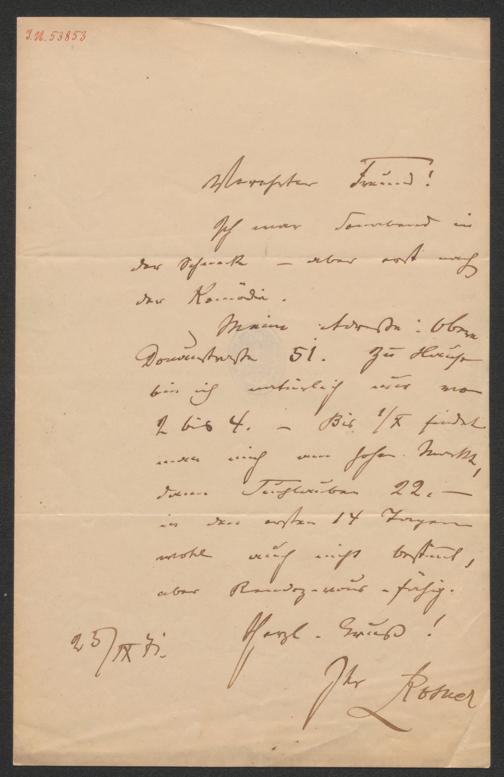 I.N. 53853
Verehrter Freund!
Ich war Sonnabend in
der Schenk – aber erst nach
der Komödie.
Meine Adresse: Obere
Donaustrasse 51. Zu Hause
bin ich natürlich nur von
2 bis 4. – Bis 1/X findet
man mich am hohen Markt,
dann Tuchlauben 22. –
in den ersten 14 Tagen
wohl auch nicht
aber Rendez-vous-fähig.
Herzl. Gruß!
25/IX 71.
Ihr Rosner